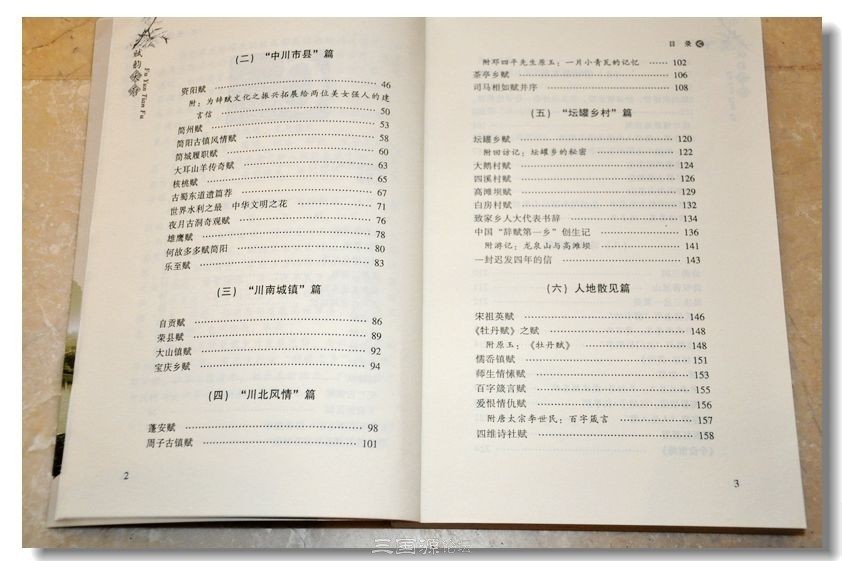 赋韵天府
Fu Yun Tian Fu
（二）“中川市县”篇
资阳赋 46
附：为辞赋文化之振兴拓展给两位美女强人的建
言信 50
简州赋 53
简阳古镇风情赋 58
简城履职赋 60
大耳山羊传奇赋 63
核桃赋 65
古蜀东道遗篇荐 67
世界水利之最　中华文明之花 71
夜月古洞奇观赋 76
雄鹰赋 78
何故多多赋简阳 80
乐至赋 83
（三）“川南城镇”篇
自贡赋 86
荣县赋 89
大山镇赋 92
宝庆乡赋 94
（四）“川北风情”篇
蓬安赋 98
周子古镇赋 101
2
目 录
附邓四平先生原玉：一片小青瓦的记忆 102
茶亭乡赋 106
司马相如赋并序 108
（五）“坛罐乡村”篇
坛罐乡赋 120
附回访记：坛罐乡的秘密 122
大鹅村赋 124
四溪村赋 126
高滩坝赋 129
白房村赋 132
致家乡人大代表书辞 134
中国“辞赋第一乡”创生记 136
附游记：龙泉山与高滩坝 141
一封迟发四年的信 143
（六）人地散见篇
宋祖英赋 146
《牡丹赋》之赋 148
附原玉：《牡丹赋》 148
儒岙镇赋 151
师生情愫赋 153
百字箴言赋 155
爱恨情仇赋 156
附唐太宗李世民：百字箴言 157
四维诗社赋 158
3
三国源论坛